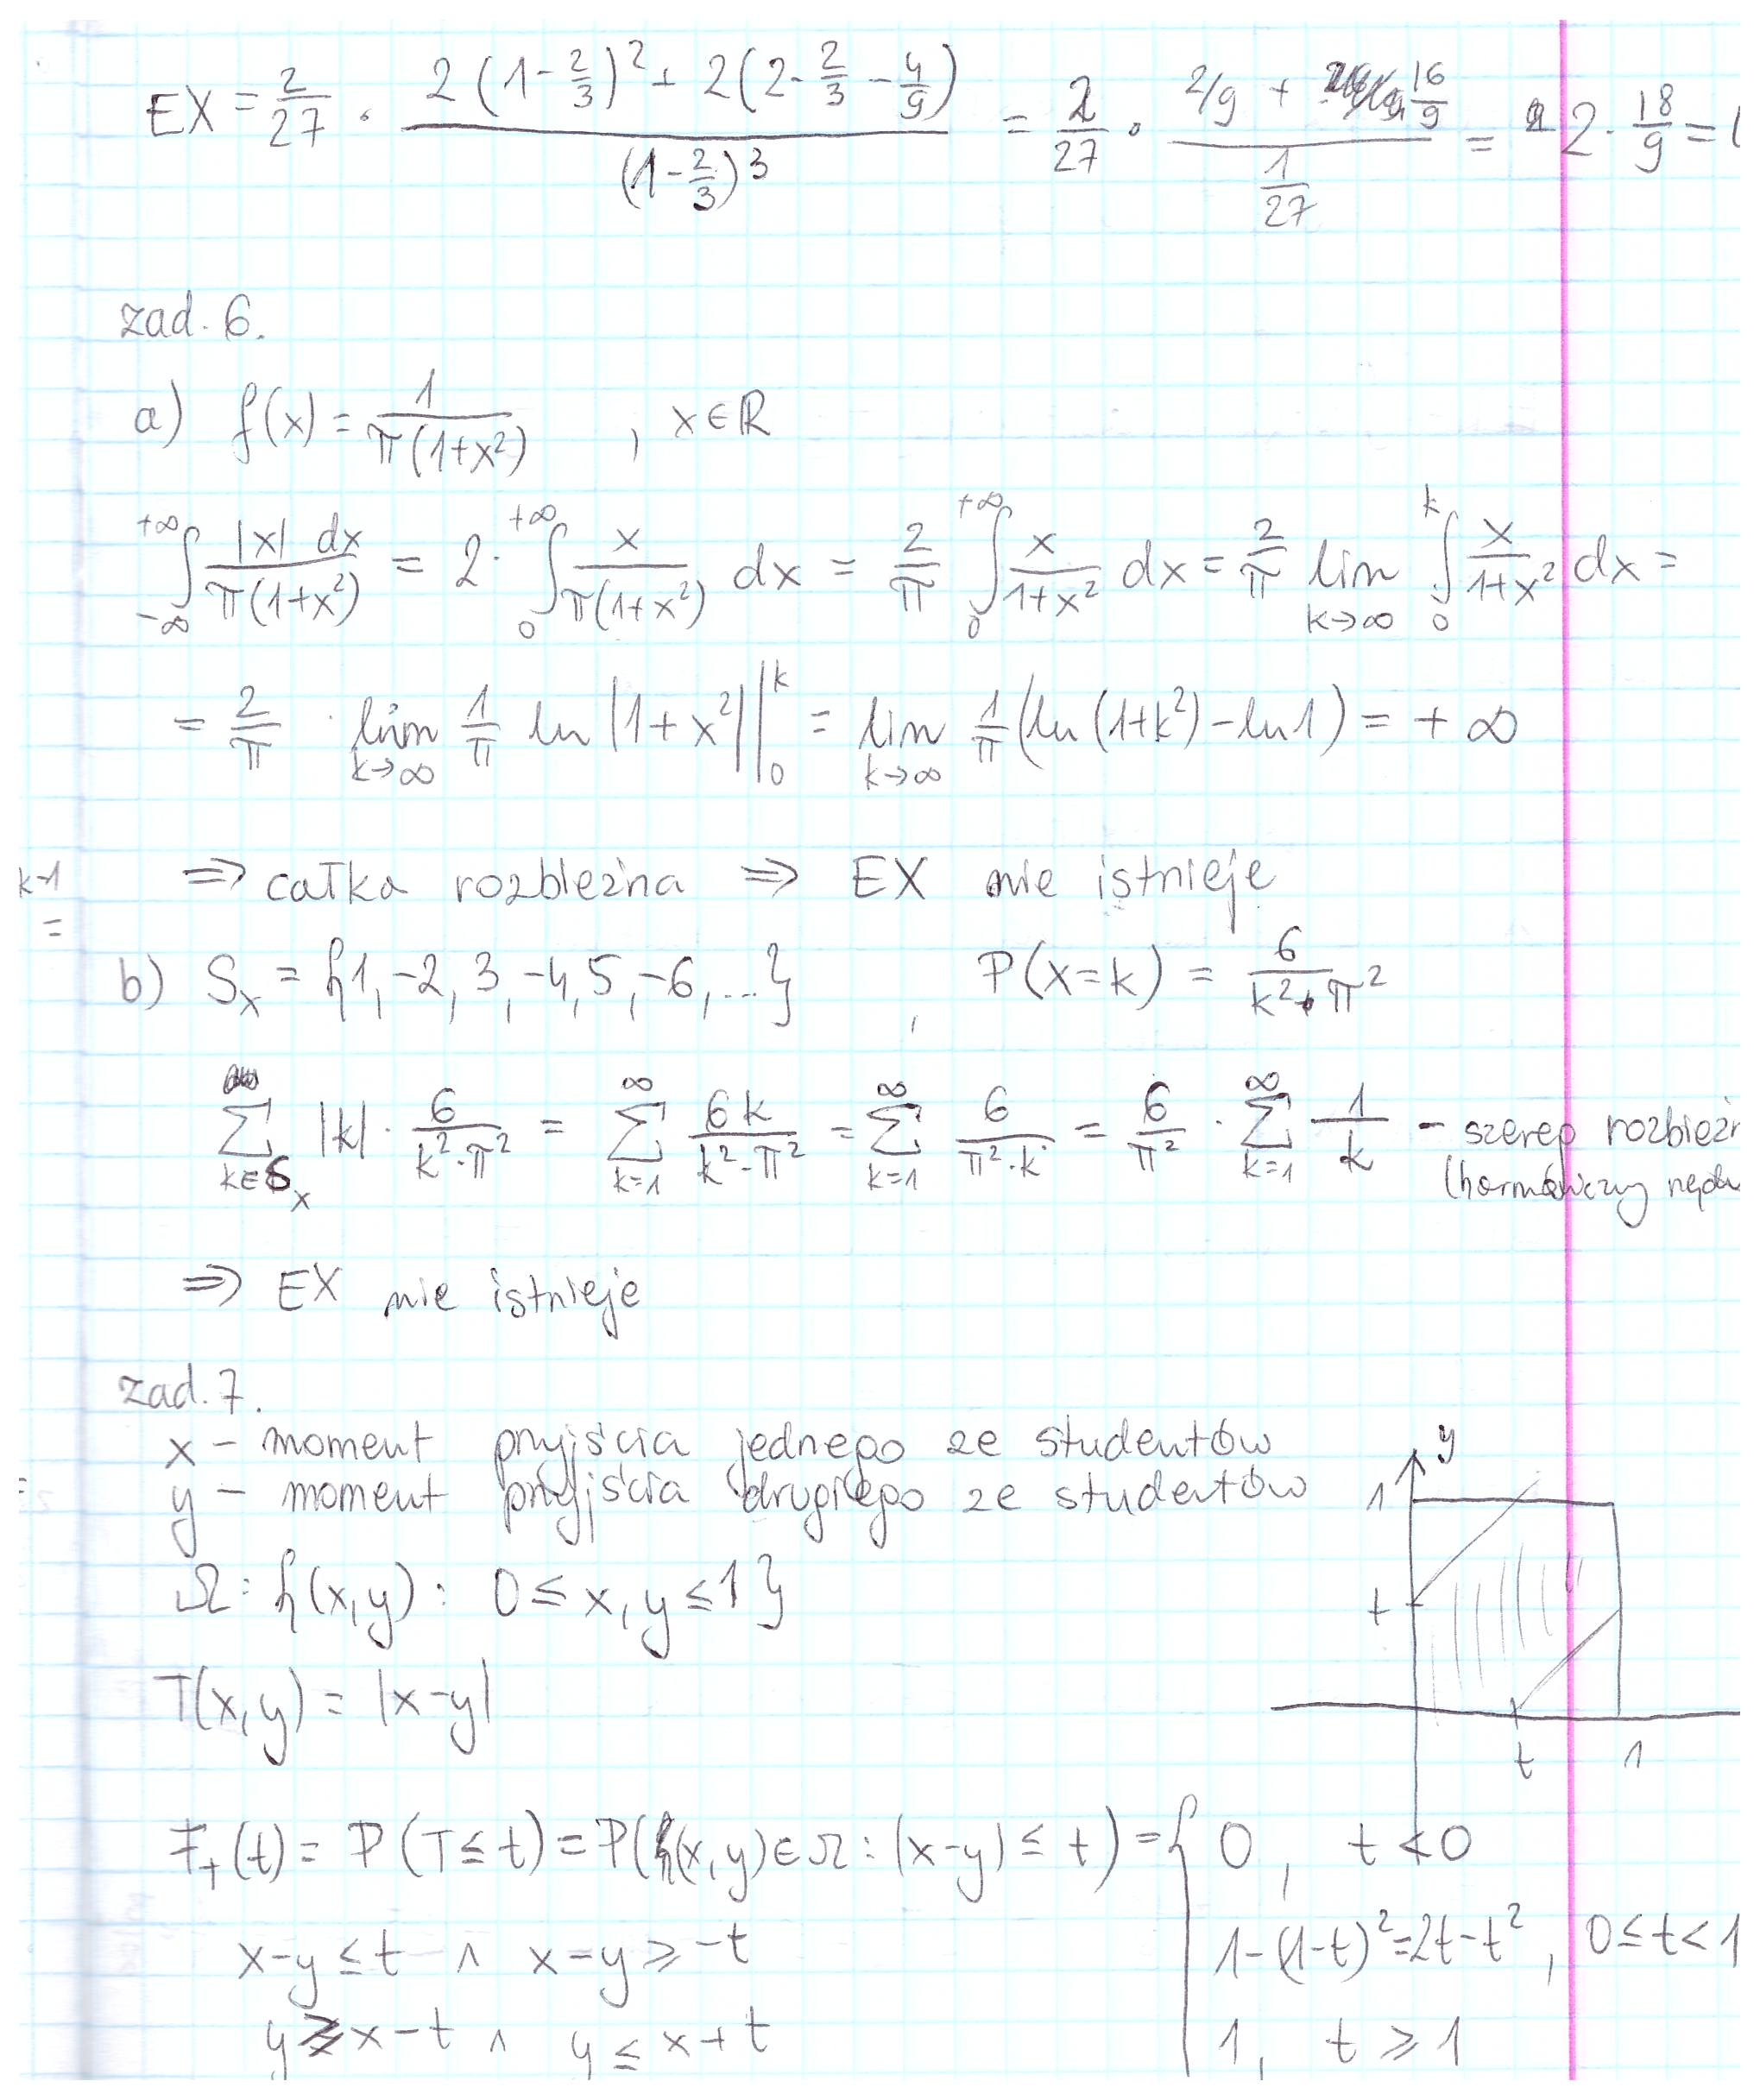 EX = 2/27 · (2(1-2/3)² + 2(2-2/3-4/9))/(1-2/3)³ = 2/27 · (2/9 + 16/9)/(1/27) = 2 · 18/9 =
zad. 6.
a) f(x) = 1/(π(1+x²)) , x∈ℝ
∫_{-∞}^{+∞} |x| dx/(π(1+x²)) = 2· ∫_0^{+∞} x/(π(1+x²)) dx = 2/π ∫_0^{+∞} x/(1+x²) dx = 2/π lim_{k→∞} ∫_0^k x/(1+x²) dx =
= 2/π · lim_{k→∞} 1/π ln|1+x²| |_0^k = lim_{k→∞} 1/π (ln(1+k²) - ln1) = +∞
k-1
⇒ całka rozbieżna ⇒ EX nie istnieje
=
b) S_x = {1, -2, 3, -4, 5, -6, ...} , P(X=k) = 6/(k²·π²)
∑_{k∈S_x} |k| · 6/(k²·π²) = ∑_{k=1}^∞ 6k/(k²·π²) = ∑_{k=1}^∞ 6/(π²·k) = 6/π² · ∑_{k=1}^∞ 1/k - szereg rozbieżn
⇒ EX nie istnieje
zad. 7.
x - moment przyjścia jednego ze studentów
y - moment przyjścia drugiego ze studentów
Ω: {(x,y): 0 ≤ x, y ≤ 1}
T(x,y) = |x-y|
y
1
t
t 1
F_T(t) = P(T ≤ t) = P({(x,y)∈Ω: |x-y| ≤ t) = { 0, t < 0
x-y ≤ t ∧ x-y ≥ -t 1-(1-t)²=2t-t², 0≤t<1
y ≥ x-t ∧ y ≤ x+t 1, t ≥ 1